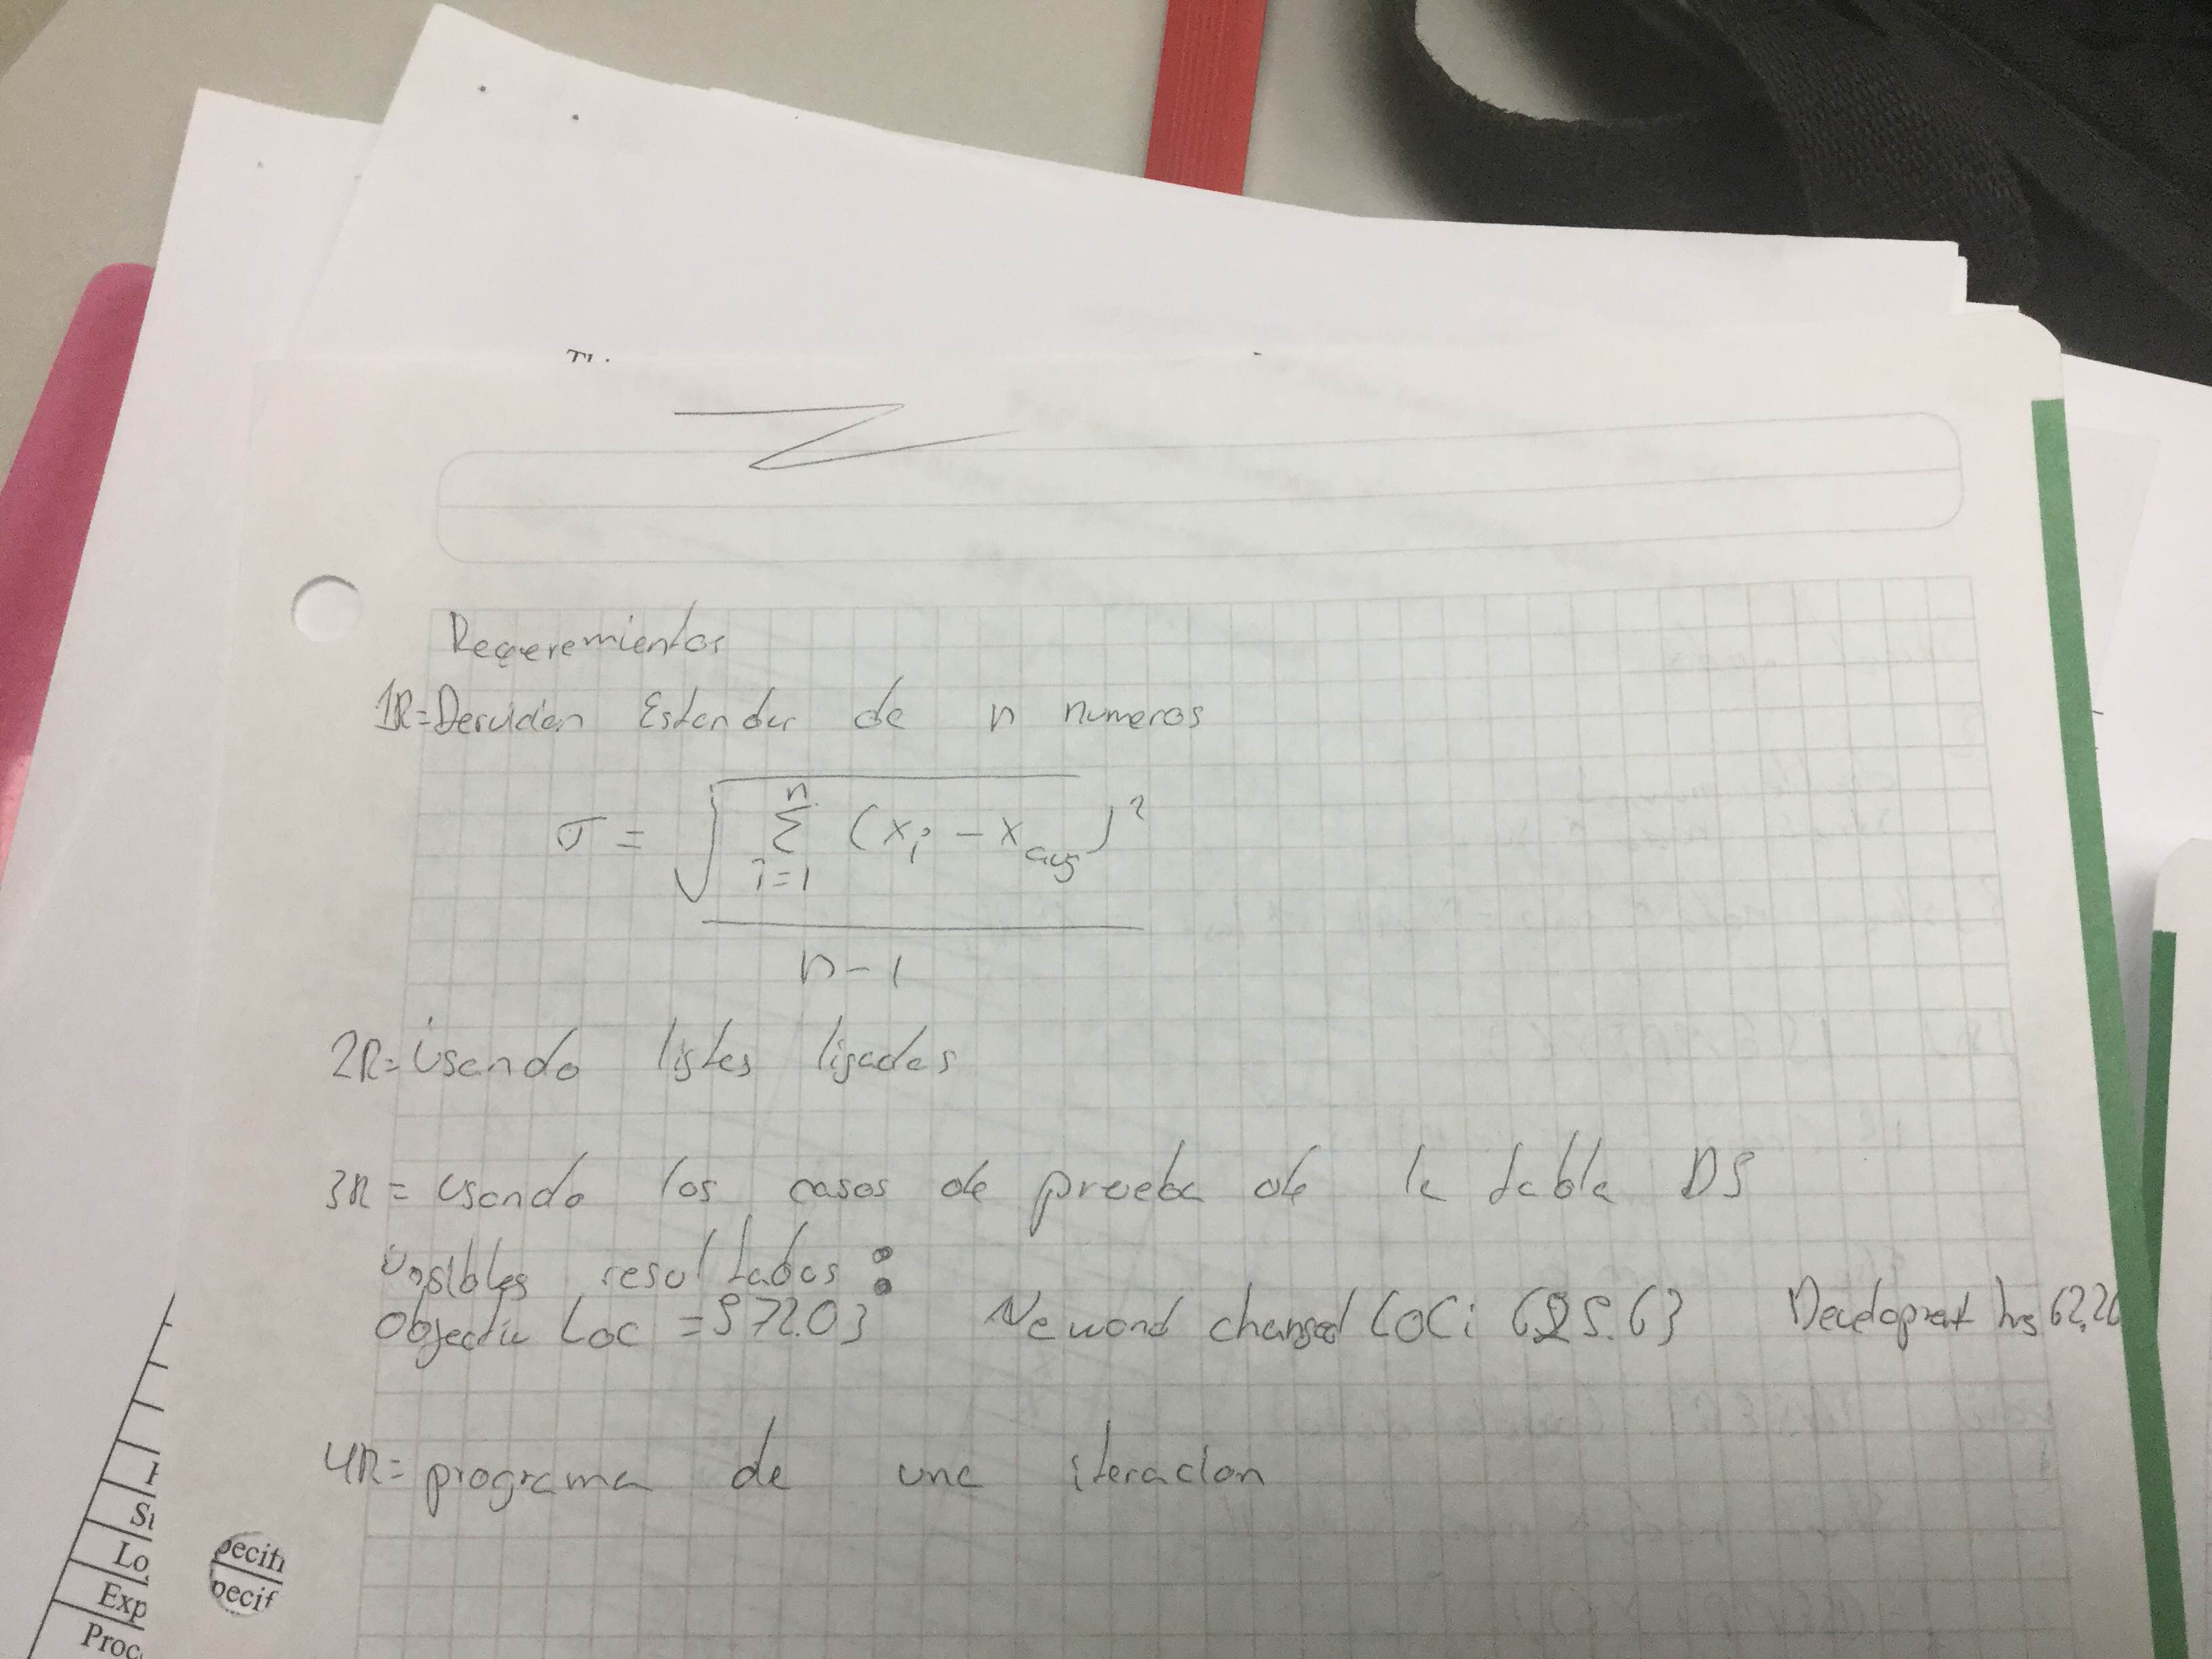 Requeremientos
1R=Desvician Estandar de n numeros
σ = √ n Σ i=1 (xi - xavg)²
n-1
2R= Usando listas ligadas
3R = usando los casos de prueba de la tabla DS
posibles resultados:
Objectic Loc = 572.03 New and changed LOC: 625.63 Development hrs 62.26
4R= programa de una iteracion
Lo
Exp
Proc
pecifi
pecif